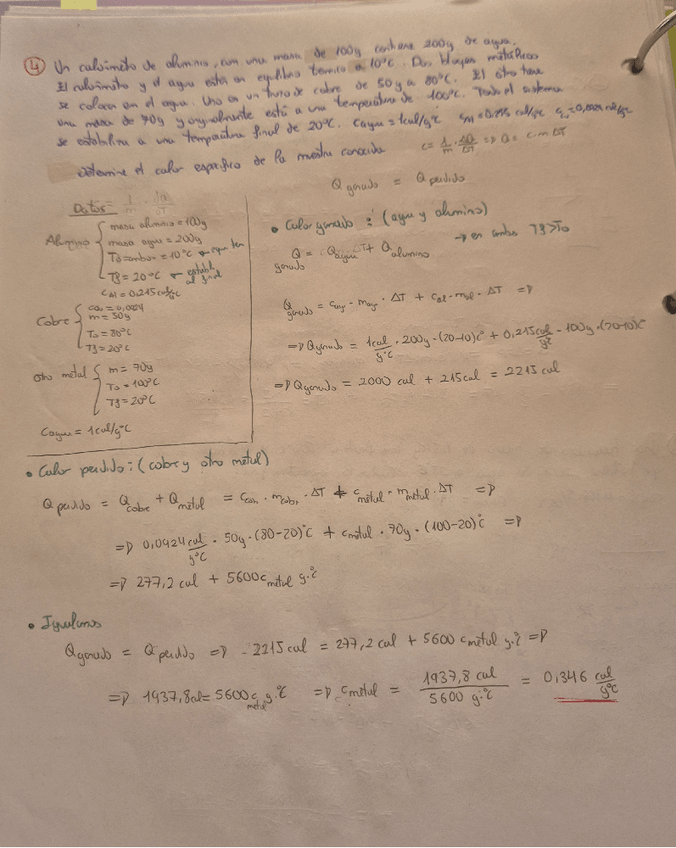 4 Un calorímetro de aluminio, con una masa de 100g contiene 200g de agua.
El calorímetro y el agua están en equilibrio térmico a 10°C. Dos bloques metálicos
se colocan en el agua. Uno es un trozo de cobre de 50g a 80°C. El otro tiene
una masa de 70g y originalmente está a una temperatura de 100°C. Todo el sistema
se estabiliza a una temperatura final de 20°C. Cagua = 1cal/g°C
Determine el calor específico de la muestra
c = 1/m · ΔQ/ΔT => Q = c m ΔT
Qganado = Qperdido
Datos
Aluminio
masa aluminio = 100g
masa agua = 200g
To ambos = 10°C
Tf = 20°C
cAl = 0,215 cal/g°C
Cobre
m = 50g
To = 80°C
Tf = 20°C
Otro metal
m = 70g
To = 100°C
Tf = 20°C
Cagua = 1cal/g°C
• Calor ganado: (agua y aluminio)
→ en ambos Tf > To
Qganado = Qagua + Qaluminio
Qganado = cagua · magua · ΔT + cal · mal · ΔT =>
=> Qganado = 1cal/g·°C · 200g · (20-10)°C + 0,215 cal/g°C · 100g · (20-10)°C
=> Qganado = 2000 cal + 215 cal = 2215 cal
• Calor perdido: (cobre y otro metal)
Qperdido = Qcobre + Qmetal = ccobr · mcobr · ΔT + cmetal · mmetal · ΔT =>
=> 0,0924 cal/g°C · 50g · (80-20)°C + cmetal · 70g · (100-20)°C =>
=> 277,2 cal + 5600 cmetal g·°C
• Igualamos
Qganado = Qperdido => 2215 cal = 277,2 cal + 5600 cmetal g·°C =>
=> 1937,8cal = 5600 cmetal g·°C => cmetal = 1937,8 cal / 5600 g·°C = 0,346 cal/g°C